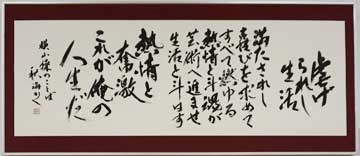 虐げられし
生活
満たされし
喜びを求めて
すべて燃ゆる
熱情と斗魂が
芸術へ進ませ
生活と斗はす
熱情と
奮激
これが俺の
人生だ
横山操のことば